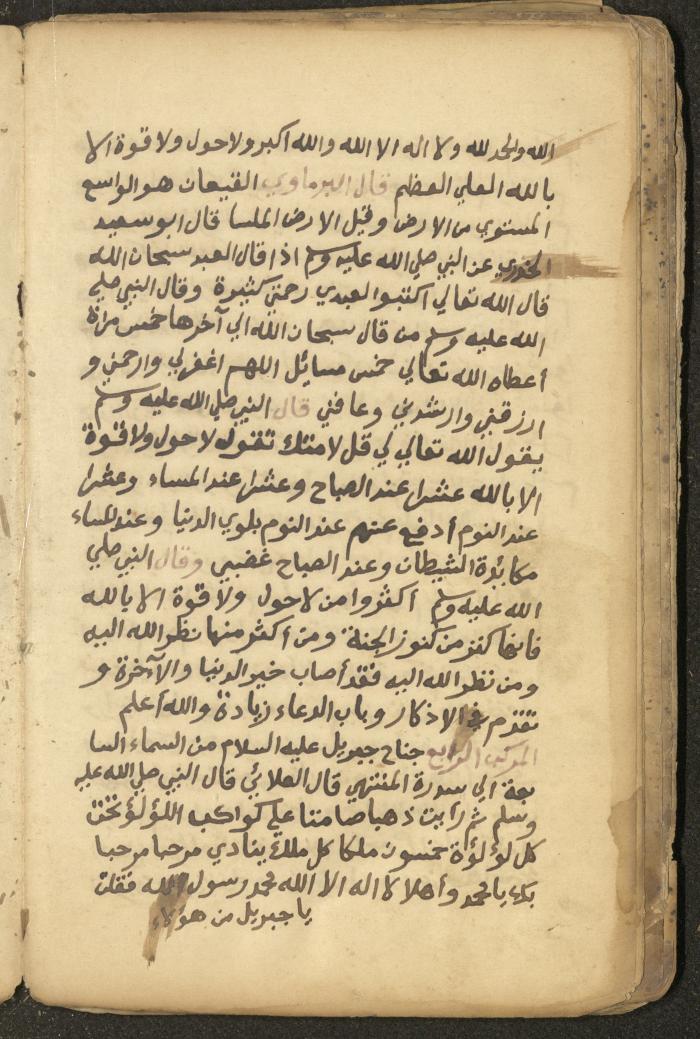 الله والحمد لله ولا اله الا الله والله اكبر ولا حول ولا قوة الا
بالله العلي العظيم قال البرماوي القيعان هو الواسع
المستوي من الارض وقيل الارض الملسا قال ابو سعيد
الخدري عن النبي صلي الله عليه وسلم اذا قال العبد سبحان الله
قال الله تعالي اكتبوا لعبدي رحمتي كثيرة وقال النبي صلي
الله عليه وسلم من قال سبحان الله الي آخرها خمس مراة
أعطاه الله تعالي خمس مسائل اللهم اغفر لي وارحمني و
ارزقني وارشدني وعافني قال النبي صلي الله عليه وسلم
يقول الله تعالي لي قل لامتك تقول لا حول ولا قوة
الا بالله عشرا عند الصباح وعشرا عند المساء وعشرا
عند النوم أدفع عنهم عند النوم بلوي الدنيا وعند المساء
مكايدة الشيطان وعند الصباح غضبي وقال النبي صلي
الله عليه وسلم أكثروا من لا حول ولا قوة الا بالله
فانها كنز من كنوز الجنة ومن أكثر منها نظر الله اليه
ومن نظر الله اليه فقد أصاب خير الدنيا والآخرة و
تقدم في الاذكار وباب الدعاء زيادة والله أعلم
المركب الرابع جناح جبريل عليه السلام من السماء السا
بعة الي سدرة المنتهي قال العلائي قال النبي صلي الله عليه
وسلم ثم رأيت ذهبا صامتا علي كواكب اللؤلؤ تحت
كل لؤلؤة خمسون ملكا كل ملك ينادي مرحبا مرحبا
بك يا محمد وأهلا لا اله الا الله محمد رسول الله فقلت
يا جبريل من هؤلاء